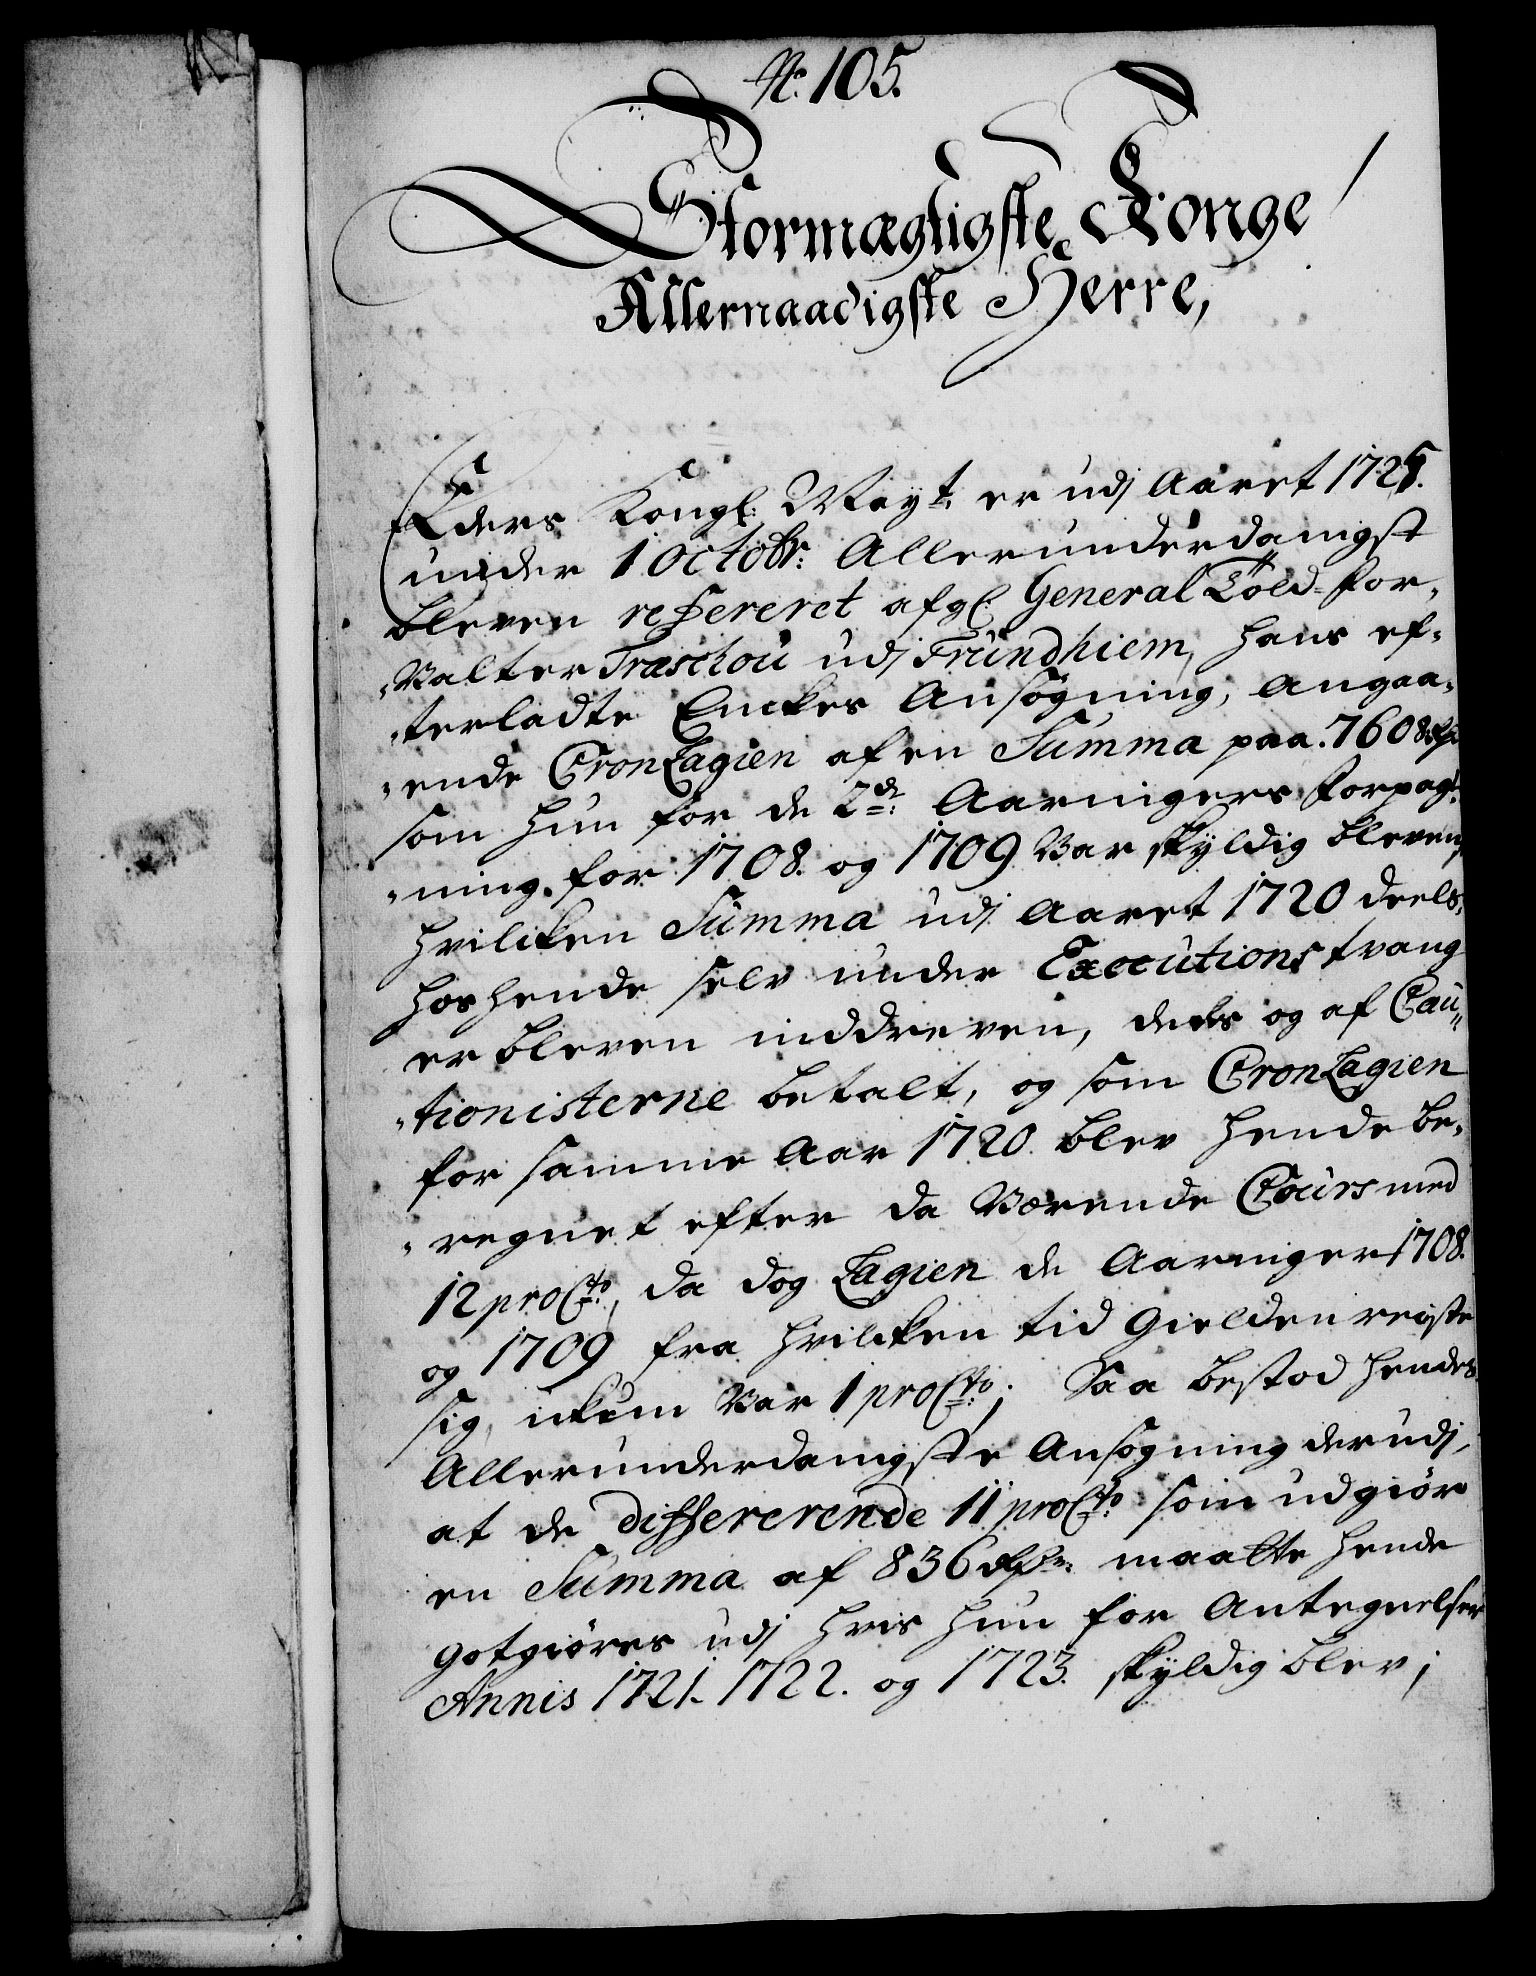 No. 105.
Stormægtigste Konge
Allernaadigste Herre,
Eders Kongl: Mayt: er udj Aaret 1725.
under 1 Octobr: Allerunderdanigst
bleven refereret afgl: General Told-for-
-valter Traschou udj Trundhiem, hans ef-
-terladte Enckes Ansøgning, angaa-
-ende CronLagien af en Summa paa 7608 Rdr
som hun for de 2de: Aaringers forpagt-
-ning for 1708. og 1709 var skyldig bleven,
hvilcken Summa udj Aaret 1720 deels,
hos hende selv under Executions tvang
er bleven inddreven, deels og af Cau-
-tionisterne betalt, og som CronLagien
for samme Aar 1720. blev hende be-
-regnet efter da værende Cours med
12 pro Cto:, da dog Lagien de Aaringer 1708.
og 1709 fra hvilcken tid Gielden reiste
sig, ickun var 1 pro Cto:; Saa bestod hendes
Allerunderdanigste Ansøgning derudj,
at de differerende 11 pro Cto: som udgiør
en Summa af 836 Rdr: maatte hende
gotgiøres udj hvis hun for Antegnelser
Annis 1721. 1722. og 1723. skyldig blev;